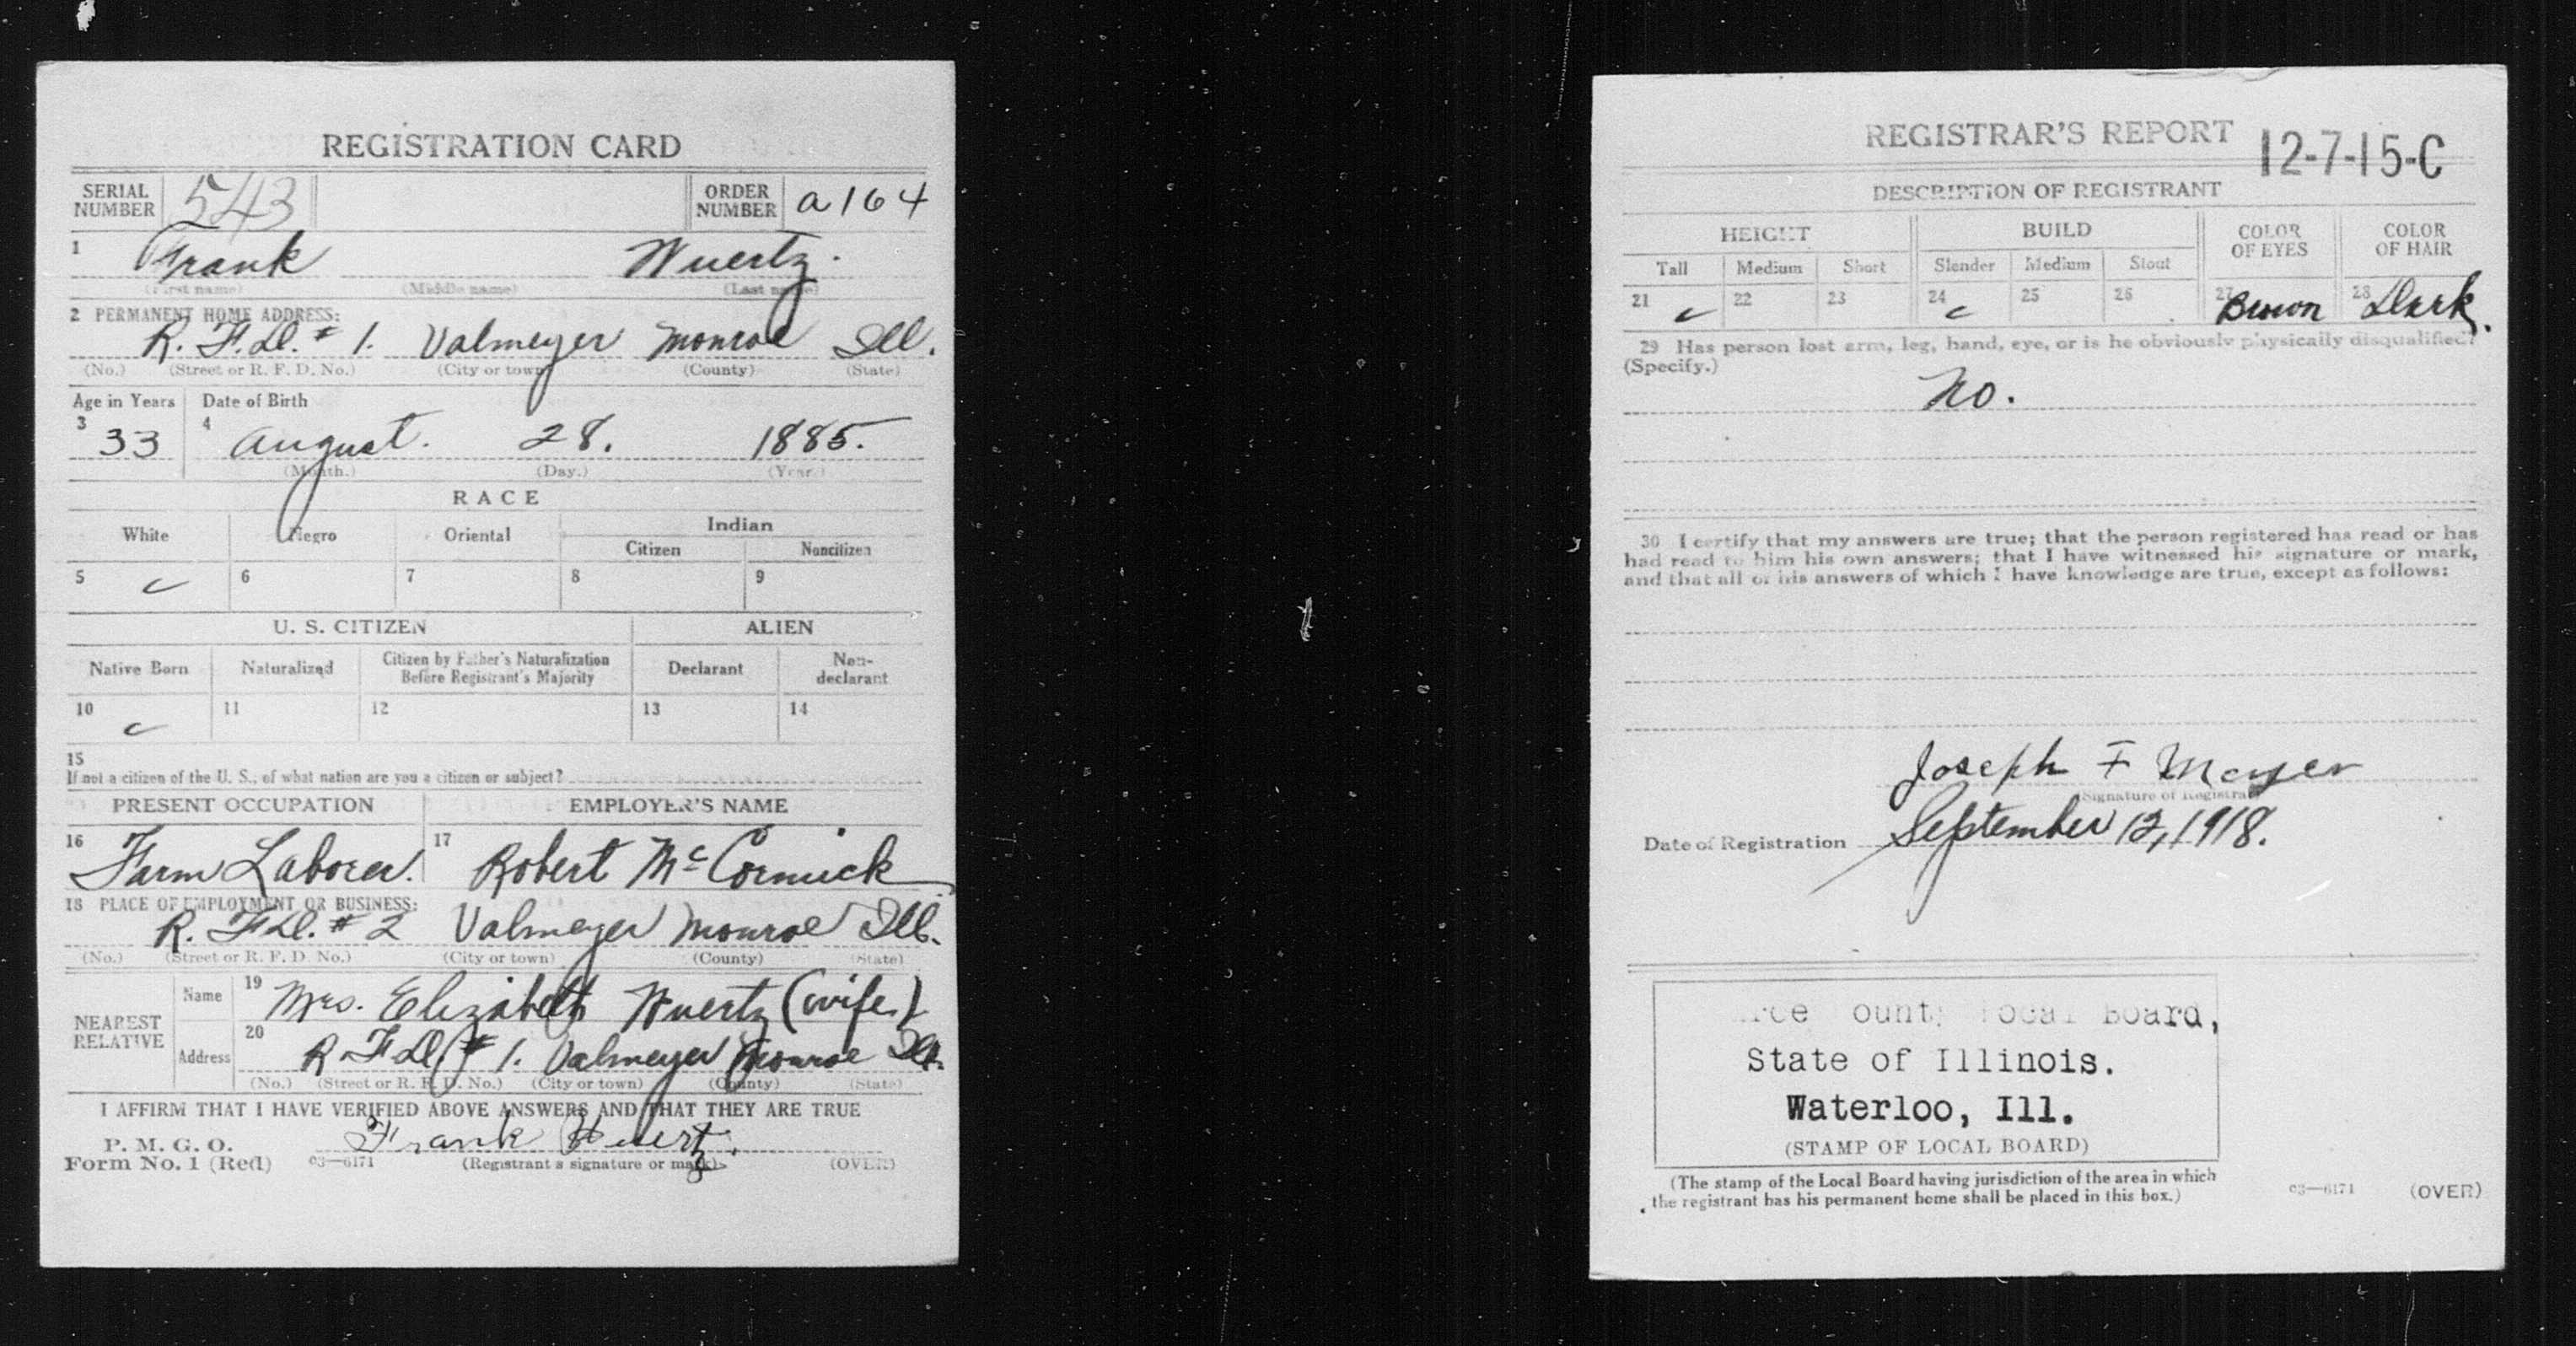 REGISTRATION CARD
SERIAL NUMBER 543 ORDER NUMBER a164
1 Frank Wuertz.
(First name) (Middle name) (Last name)
2 PERMANENT HOME ADDRESS:
R. F.D. # 1. Valmeyer Monroe Ill.
(No.) (Street or R. F. D. No.) (City or town) (County) (State)
Age in Years Date of Birth
3 33 4 August. 28. 1885.
(Month.) (Day.) (Year.)
RACE
White Negro Oriental Indian
Citizen Noncitizen
5 6 7 8 9
U. S. CITIZEN ALIEN
Native Born Naturalized Citizen by Father's Naturalization Before Registrant's Majority Declarant Non-declarant
10 11 12 13 14
15
If not a citizen of the U. S., of what nation are you a citizen or subject?
PRESENT OCCUPATION EMPLOYER'S NAME
16 Farm Laborer. 17 Robert McCormick
18 PLACE OF EMPLOYMENT OR BUSINESS:
R. F.D. # 2 Valmeyer Monroe Ill.
(No.) (Street or R. F. D. No.) (City or town) (County) (State)
NEAREST RELATIVE
Name 19 Mrs. Elizabeth Wuertz (wife.)
Address 20 R.F.D. # 1. Valmeyer Monroe Ill.
(No.) (Street or R. F. D. No.) (City or town) (County) (State)
I AFFIRM THAT I HAVE VERIFIED ABOVE ANSWERS AND THAT THEY ARE TRUE
P. M. G. O.
Form No. 1 (Red) 03—6171 Frank Wuertz.
(Registrant's signature or mark) (OVER)
REGISTRAR'S REPORT 12-7-15-C
DESCRIPTION OF REGISTRANT
HEIGHT BUILD COLOR OF EYES COLOR OF HAIR
Tall Medium Short Slender Medium Stout
21 22 23 24 25 26 27 Brown 28 Dark.
29 Has person lost arm, leg, hand, eye, or is he obviously physically disqualified?
(Specify.)
No.
30 I certify that my answers are true; that the person registered has read or has
had read to him his own answers; that I have witnessed his signature or mark,
and that all of his answers of which I have knowledge are true, except as follows:
Joseph F Meyer
(Signature of Registrar)
Date of Registration September 12, 1918.
Board,
State of Illinois.
Waterloo, Ill.
(STAMP OF LOCAL BOARD)
(The stamp of the Local Board having jurisdiction of the area in which
the registrant has his permanent home shall be placed in this box.)
03—6171 (OVER)